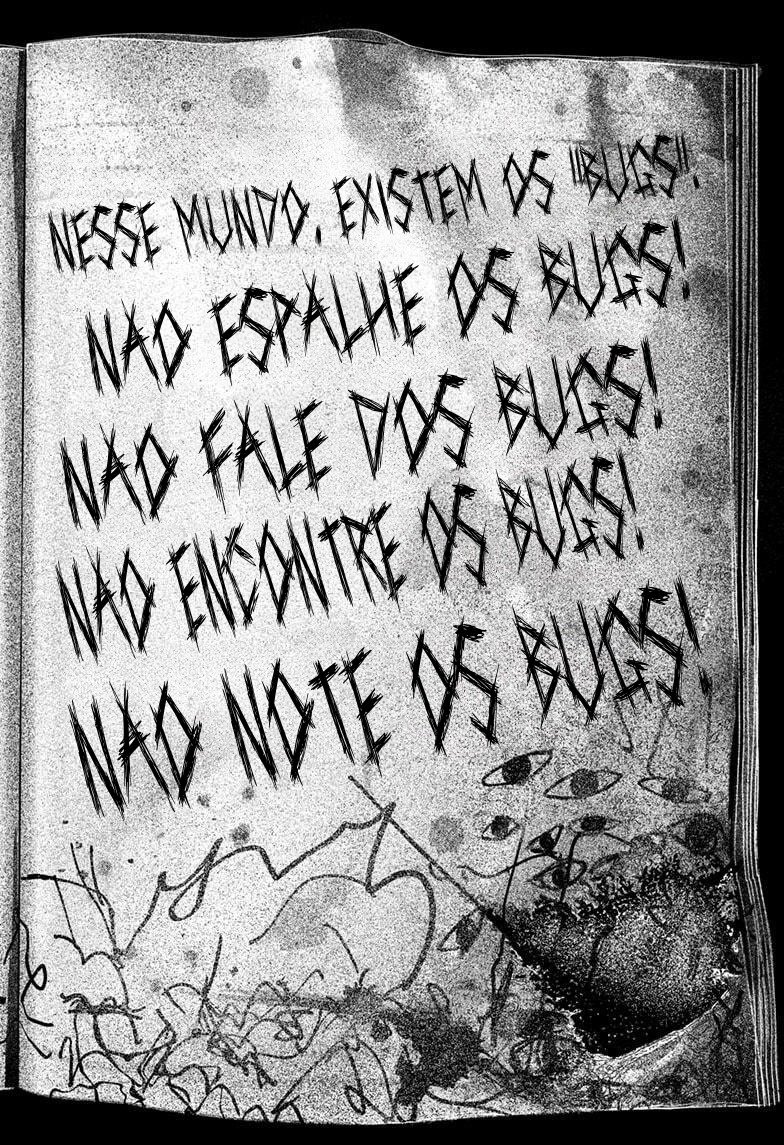 NESSE MUNDO, EXISTEM OS "BUGS".
NAO ESPALHE OS BUGS!
NAO FALE DOS BUGS!
NAO ENCONTRE OS BUGS!
NAO NOTE OS BUGS!